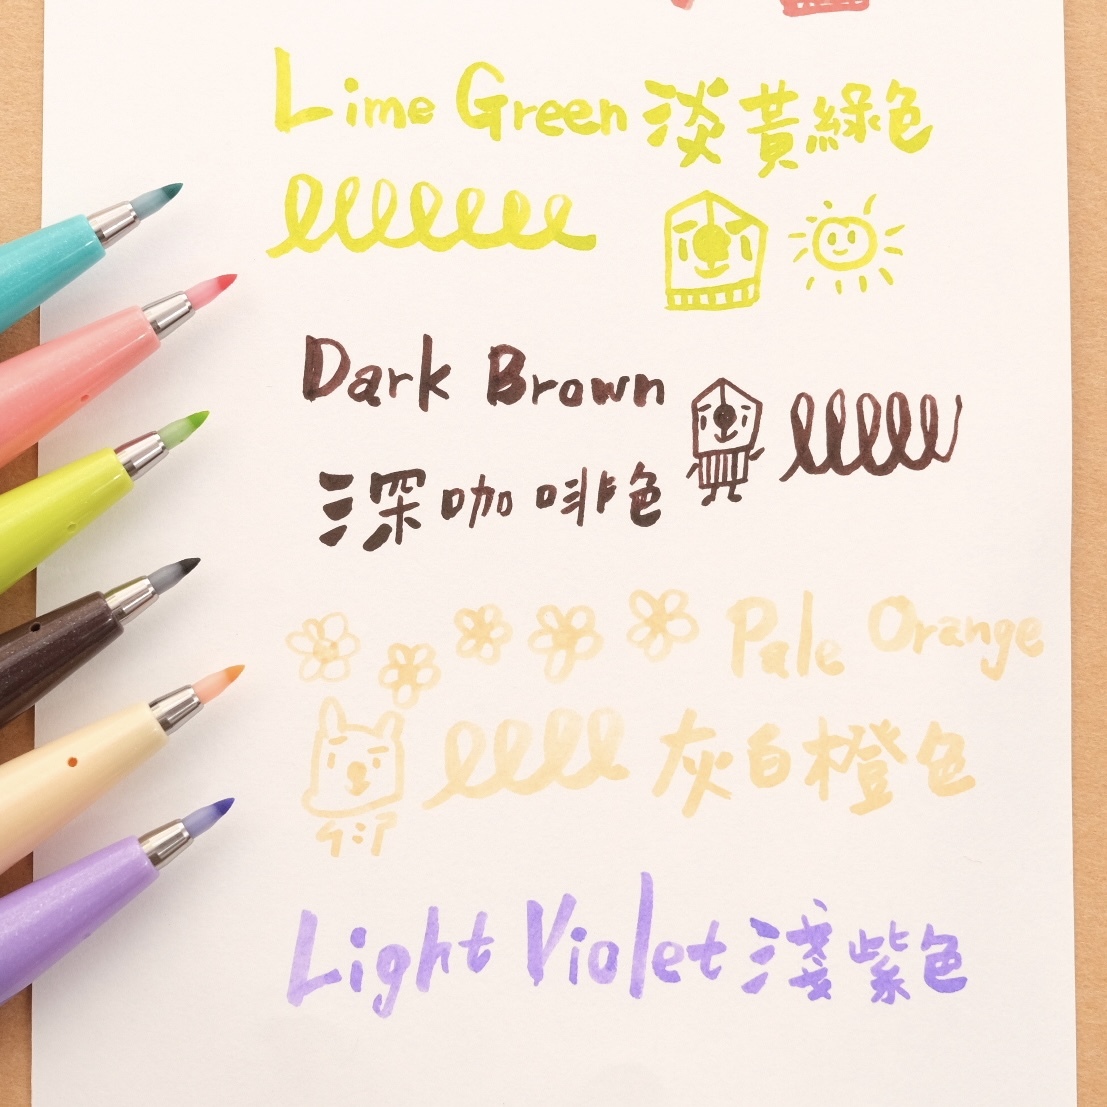 Lime Green 淡黃綠色
Dark Brown
深咖啡色
Pale Orange
灰白橙色
Light Violet 淺紫色